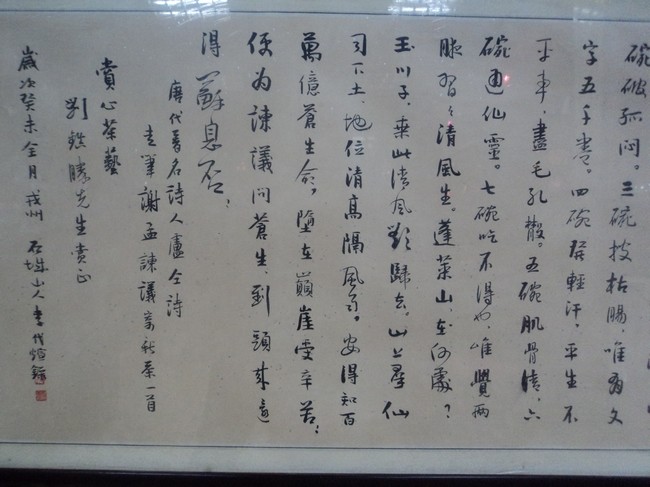 碗破孤闷。三碗搜枯腸,唯有文
字五千卷。四碗發輕汗,平生不
平事,盡毛孔散。五碗肌骨清,六
碗通仙靈。七碗吃不得也,唯覺兩
腋習々清風生。蓬萊山,在何處?
玉川子,乘此清风欲歸去。山上羣仙
司下土,地位清高隔風雨。安得知百
萬億蒼生命,墮在巔崖受辛苦;
便为諫議问蒼生,到頭來還
得蘇息否?
唐代著名詩人盧仝詩
走筆謝孟諫議寄新茶一首
賞心茶藝
劉勝先生賞正
歲次癸未月 戎州 石城山人李代